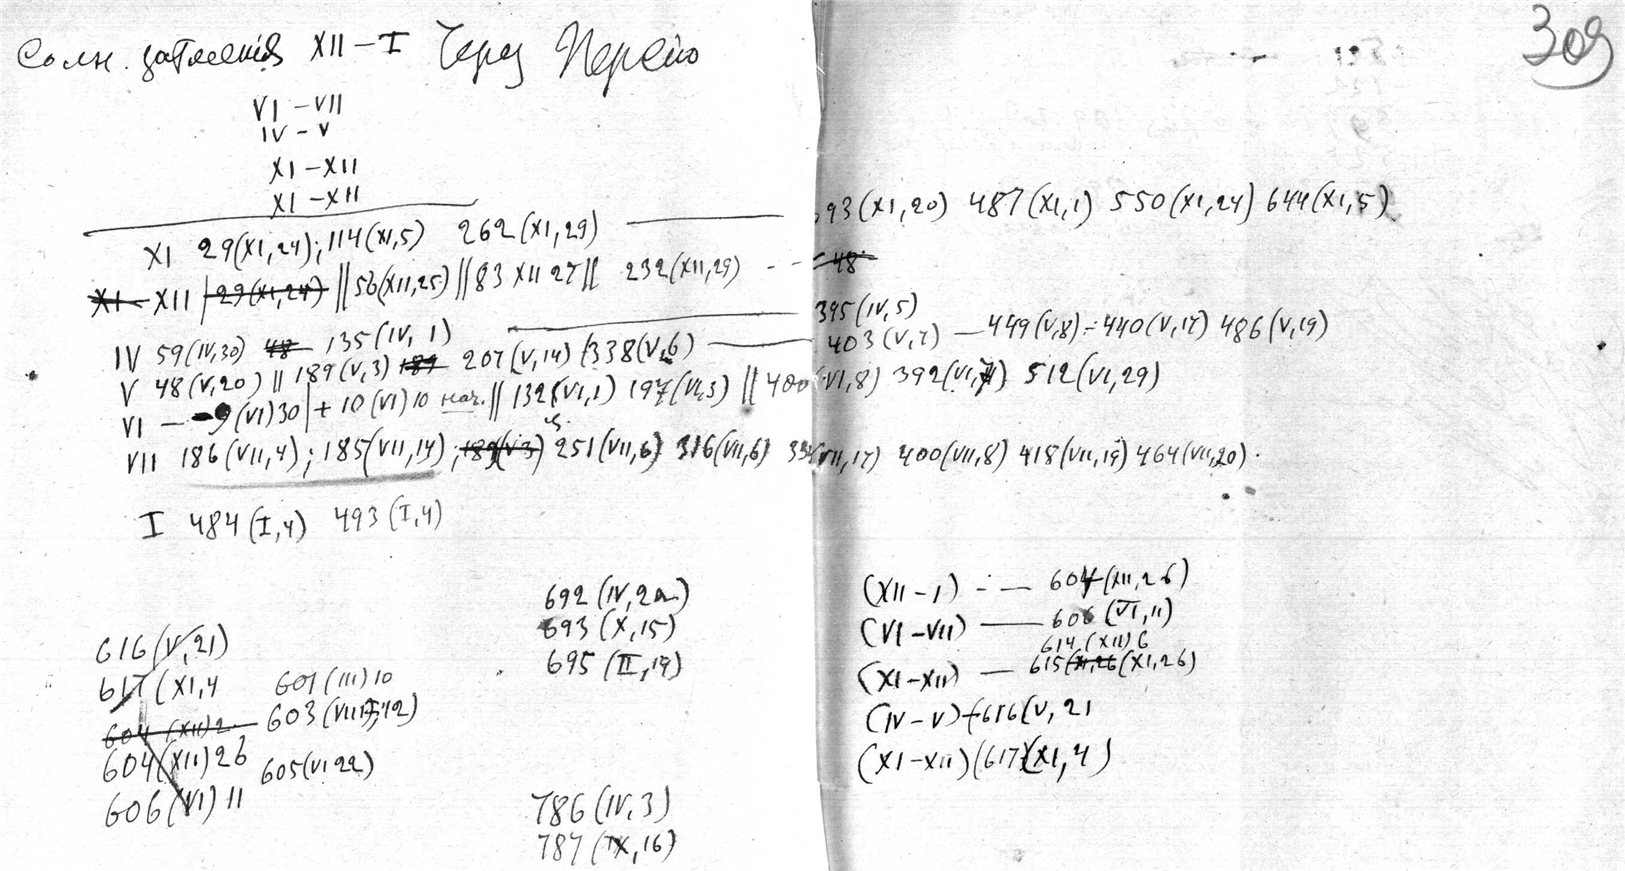 309
Солн. затмения XII – I Через Персию
VI – VII
IV – V
XI – XII
XI – XII
XI 29(XI,24); 114(XI,5) 262(XI,29) —— 393(XI,20) 487(XI,1) 550(XI,24) 644(XI,5)
XI – XII 29(XI,24) || 56(XII,25) || 83 XII 27 || 232(XII,29) - - 48
IV 59(IV,30) 48 135(IV,1) —— 395(IV,5)
V 48(V,20) || 189(V,3) 189 207(V,14) 338(V,6) —— 403(V,7) — 449(V,8) = 440(V,17) 486(V,19)
VI — 9(VI)30 + 10(VI)10 нач. || 132(VI,1) 197(VI,3) || 400(VI,8) 392(VI,7) 512(VI,29)
VII 186(VII,4); 185(VII,14); 189(V3) 251(VII,6) 316(VII,6) (VII,17) 400(VII,8) 418(VII,19) 464(VII,20).
I 484(I,4) 493(I,4)
692 (IV,22)
693 (X,15)
695 (II,19)
616(V,21)
617(XI,4
604 (XII)2
604(XII)26
606(VI)11
601(III)10
603(VIII,12)
605(VI22)
786(IV,3)
787(IX,16)
(XII – I) - — 604(XII,26)
(VI – VII) — 606 (VI,11)
614(XII)6
(XI – XII) — 615 XI,26 (XI,26)
(IV – V) + 616(V,21
(XI – XII)(617)(XI,4)